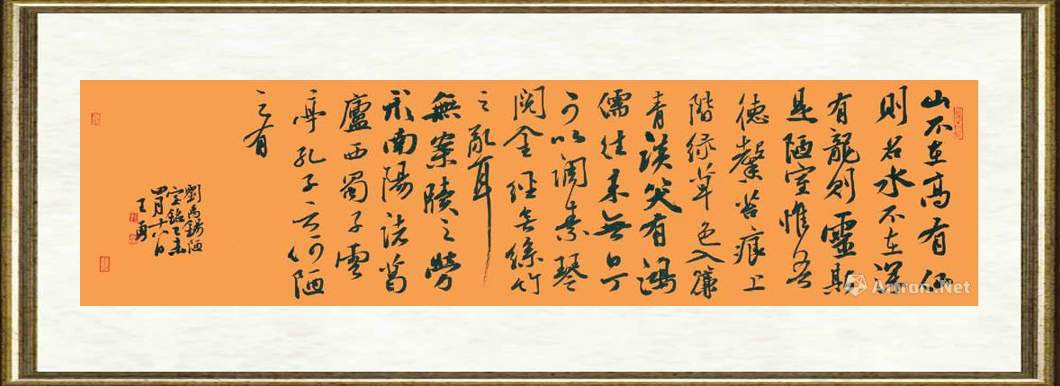 山不在高有仙
则名水不在深
有龍则靈斯
是陋室惟吾
德馨苔痕上
階緑草色入簾
青談笑有鴻
儒往来无白丁
可以调素琴
閲金經无絲竹
之亂耳
無案牘之勞
形南陽诸葛
廬西蜀子雲
亭孔子云何陋
之有
劉禹錫陋
室銘乙未
四月十六日
王勇
Artron.Net